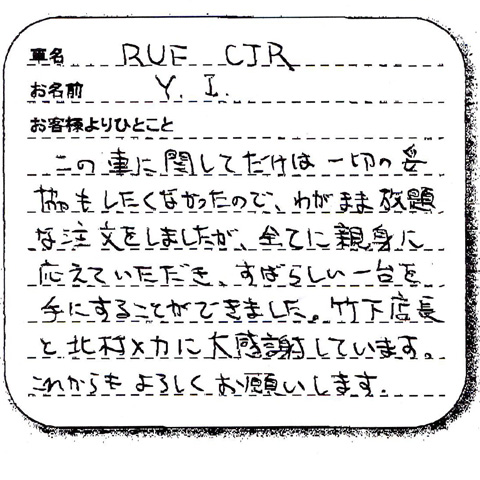 車名 RUF CTR
お名前 Y. I.
お客様よりひとこと
この車に関してだけは一切の妥
協もしたくなかったので、わがまま放題
な注文をしましたが、全てに親身に
応えていただき、すばらしい一台を
手にすることができました。竹下店長
と北村メカに大感謝しています。
これからもよろしくお願いします.